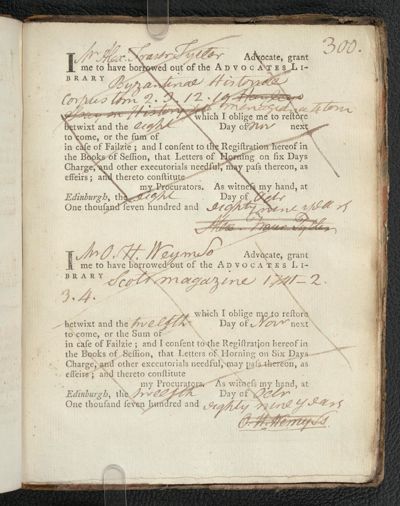 300.
I Mr Alexr Fraser Tytler Advocate, grant
me to have borrowed out of the ADVOCATES LI-
BRARY Byzantinae Historiae
Corpus tom 2. 3. 12. 19
which I oblige me to restore
betwixt and the eight Day of Nov next
to come, or the sum of
in case of Failzie; and I consent to the Registration hereof in
the Books of Session, that Letters of Horning on six Days
Charge, and other executorials needful, may pass thereon, as
effeirs; and thereto constitute
my Procurators. As witness my hand, at
Edinburgh, the eight Day of Octr
One thousand seven hundred and eighty nine years
Alex. Fraser Tytler
I Mr O. H. Weymss Advocate, grant
me to have borrowed out of the ADVOCATES LI-
BRARY Scots magazine 1741-2.
3. 4.
which I oblige me to restore
betwixt and the twelfth Day of Novr next
to come, or the Sum of
in case of Failzie; and I consent to the Registration hereof in
the Books of Session, that Letters of Horning on Six Days
Charge, and other executorials needful, may pass thereon, as
effeirs; and thereto constitute
my Procurators. As witness my hand, at
Edinburgh, the twelfth Day of Octr
One thousand seven hundred and eighty nine years
O. H. Wemyss